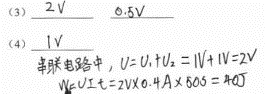 (3) 2V 0.5V
(4) 1V
串联电路中，U=U₁+U₂=1V+1V=2V
W=UIt=2V×0.4A×50S=40J